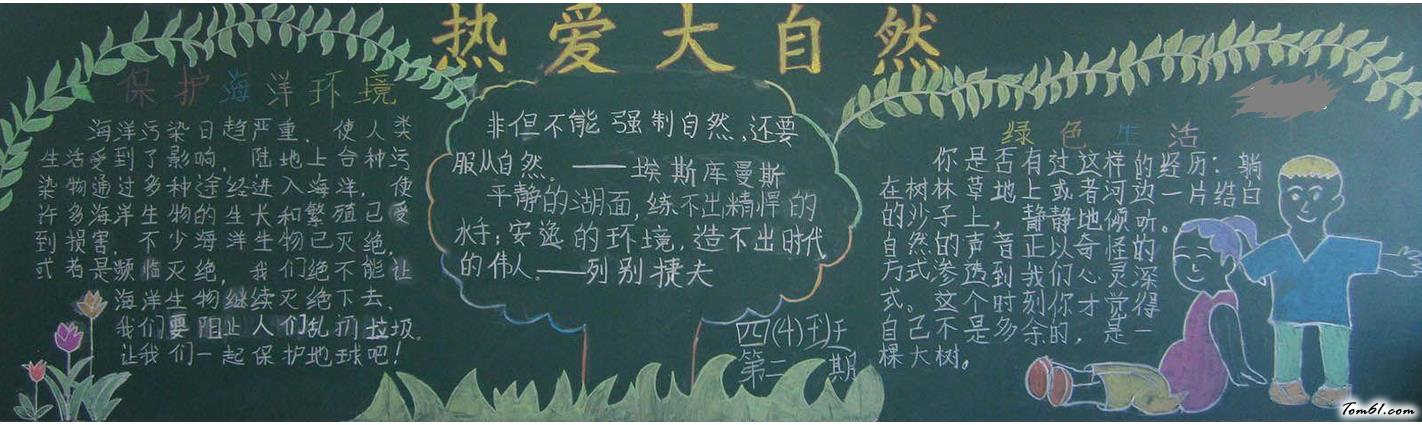 热爱大自然
保护海洋环境
海洋污染日趋严重，使人类
生活受到了影响，陆地上各种污
染物通过多种途经进入海洋，使
许多海洋生物的生长和繁殖已受
到损害，不少海洋生物已灭绝，
或者是濒临灭绝，我们绝不能让
海洋生物继续灭绝下去，
我们要阻止人们乱扔垃圾。
让我们一起保护地球吧！
非但不能强制自然，还要
服从自然。——埃斯库曼斯
平静的湖面，练不出精悍的
水手；安逸的环境，造不出时代
的伟人。——列别捷夫
四(4)班
第二期
绿色生活
你是否有过这样的经历：躺
在树林草地上或者河边一片结白
的沙子上，静静地倾听。
自然的声音正以奇怪的
方式渗透到我们心灵深
式。这个时刻你才觉得
自己不是多余的，是一
棵大树。
Tom61.com